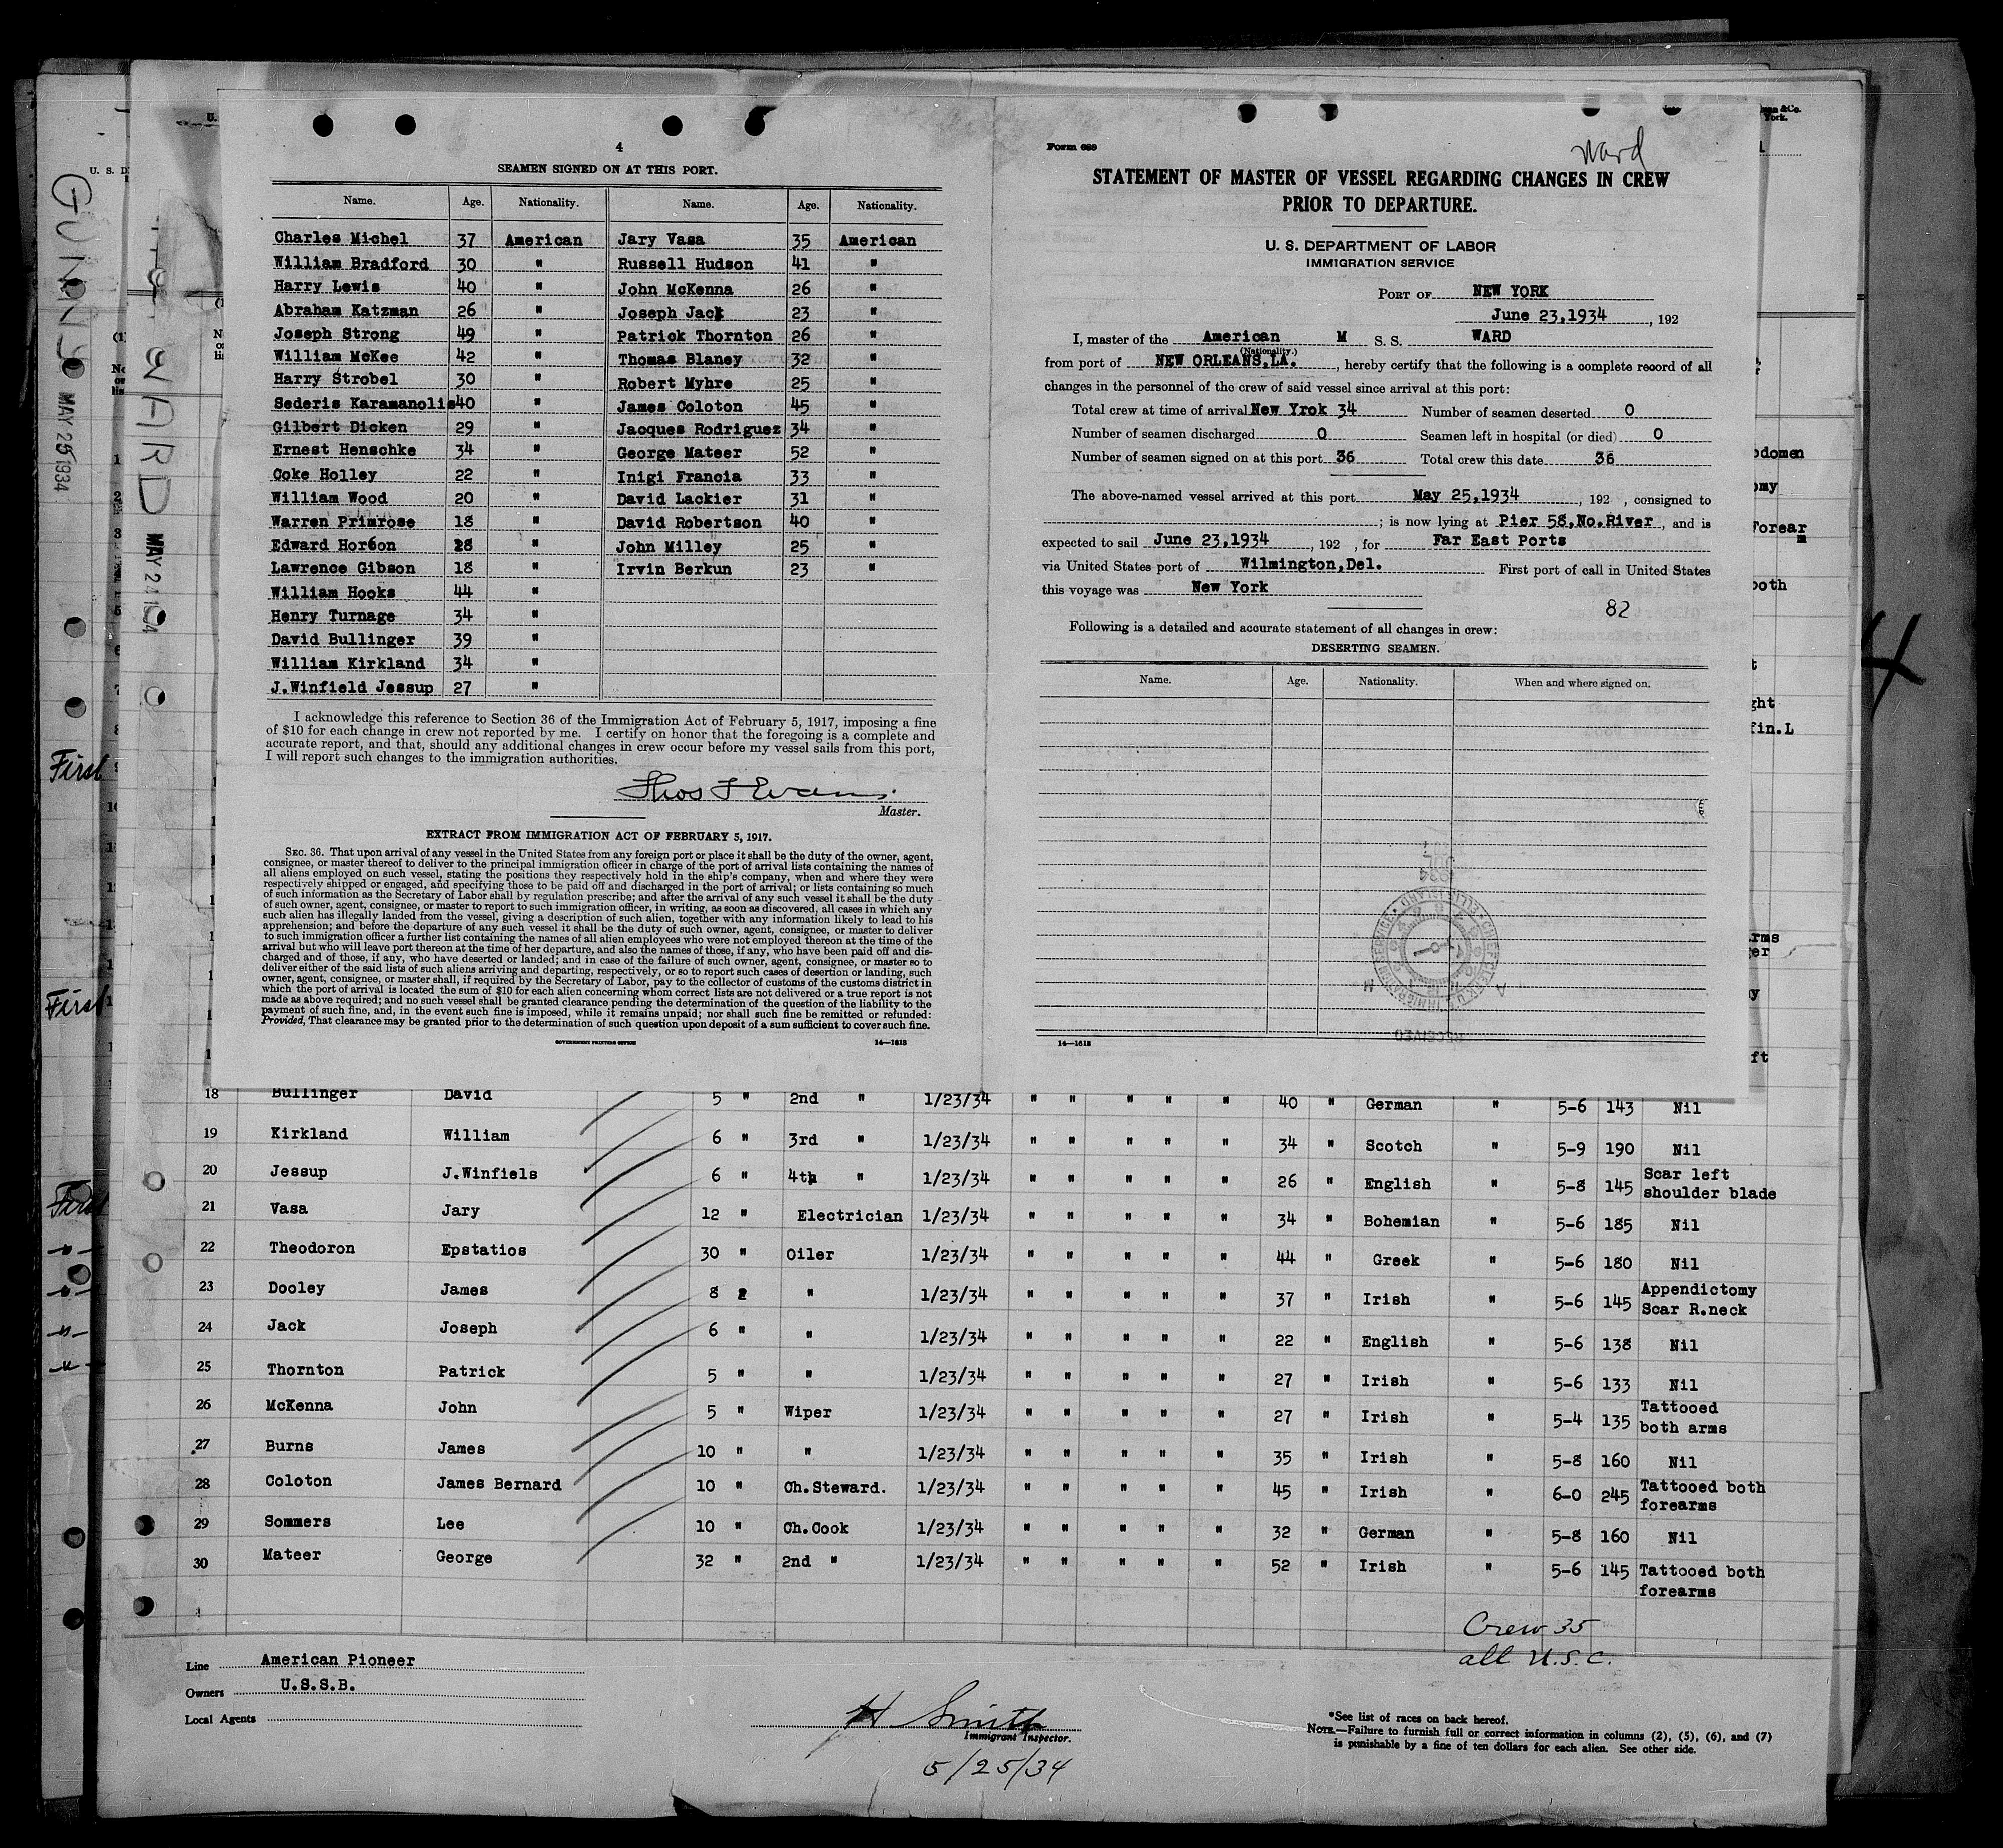 4
SEAMEN SIGNED ON AT THIS PORT.
Name. Age. Nationality. Name. Age. Nationality.
Charles Michel 37 American Jary Vasa 35 American
William Bradford 30 " Russell Hudson 41 "
Harry Lewis 40 " John McKenna 26 "
Abraham Katzman 26 " Joseph Jack 23 "
Joseph Strong 49 " Patrick Thornton 26 "
William McKee 42 " Thomas Blaney 32 "
Harry Strobel 30 " Robert Myhre 25 "
Sederis Karamanolis 40 " James Coloton 45 "
Gilbert Dicken 29 " Jacques Rodriguez 34 "
Ernest Henschke 34 " George Mateer 52 "
Coke Holley 22 " Inigi Francia 33 "
William Wood 20 " David Lackier 31 "
Warren Primrose 18 " David Robertson 40 "
Edward Horton 28 " John Milley 25 "
Lawrence Gibson 18 " Irvin Berkun 23 "
William Hooks 44 "
Henry Turnage 34 "
David Bullinger 39 "
William Kirkland 34 "
J.Winfield Jessup 27 "
I acknowledge this reference to Section 36 of the Immigration Act of February 5, 1917, imposing a fine
of $10 for each change in crew not reported by me. I certify on honor that the foregoing is a complete and
accurate report, and that, should any additional changes in crew occur before my vessel sails from this port,
I will report such changes to the immigration authorities.
Thos F Evans
Master.
EXTRACT FROM IMMIGRATION ACT OF FEBRUARY 5, 1917.
SEC. 36. That upon arrival of any vessel in the United States from any foreign port or place it shall be the duty of the owner, agent,
consignee, or master thereof to deliver to the principal immigration officer in charge of the port of arrival lists containing the names of
all aliens employed on such vessel, stating the positions they respectively hold in the ship's company, when and where they were
respectively shipped or engaged, and specifying those to be paid off and discharged in the port of arrival; or lists containing so much
of such information as the Secretary of Labor shall by regulation prescribe; and after the arrival of any such vessel it shall be the duty
of such owner, agent, consignee, or master to report to such immigration officer, in writing, as soon as discovered, all cases in which any
such alien has illegally landed from the vessel, giving a description of such alien, together with any information likely to lead to his
apprehension; and before the departure of any such vessel it shall be the duty of such owner, agent, consignee, or master to deliver
to such immigration officer a further list containing the names of all alien employees who were not employed thereon at the time of the
arrival but who will leave port thereon at the time of her departure, and also the names of those, if any, who have been paid off and dis-
charged and of those, if any, who have deserted or landed; and in case of the failure of such owner, agent, consignee, or master so to
deliver either of the said lists of such aliens arriving and departing, respectively, or so to report such cases of desertion or landing, such
owner, agent, consignee, or master shall, if required by the Secretary of Labor, pay to the collector of customs of the customs district in
which the port of arrival is located the sum of $10 for each alien concerning whom correct lists are not delivered or a true report is not
made as above required; and no such vessel shall be granted clearance pending the determination of the question of the liability to the
payment of such fine, and, in the event such fine is imposed, while it remains unpaid; nor shall such fine be remitted or refunded:
Provided, That clearance may be granted prior to the determination of such question upon deposit of a sum sufficient to cover such fine.
GOVERNMENT PRINTING OFFICE 14—1613
Form 689
Ward
STATEMENT OF MASTER OF VESSEL REGARDING CHANGES IN CREW
PRIOR TO DEPARTURE.
U. S. DEPARTMENT OF LABOR
IMMIGRATION SERVICE
PORT OF NEW YORK
June 23,1934, 192
I, master of the American M S. S. WARD
(Nationality.)
from port of NEW ORLEANS,LA., hereby certify that the following is a complete record of all
changes in the personnel of the crew of said vessel since arrival at this port:
Total crew at time of arrival New Yrok 34 Number of seamen deserted 0
Number of seamen discharged 0 Seamen left in hospital (or died) 0
Number of seamen signed on at this port 36 Total crew this date 36
The above-named vessel arrived at this port May 25,1934, 192 , consigned to
; is now lying at Pier 58,No.River, and is
expected to sail June 23,1934, 192 , for Far East Ports
via United States port of Wilmington,Del. First port of call in United States
this voyage was New York
82
Following is a detailed and accurate statement of all changes in crew:
DESERTING SEAMEN.
Name. Age. Nationality. When and where signed on.
14—1613
GUNNY MAY 25 1934
WARD MAY 24 1934
First
First
First
18 Bullinger David 5 " 2nd " 1/23/34 " " " " " 40 " German " 5-6 143 Nil
19 Kirkland William 6 " 3rd " 1/23/34 " " " " " 34 " Scotch " 5-9 190 Nil
20 Jessup J.Winfiels 6 " 4th " 1/23/34 " " " " " 26 " English " 5-8 145 Scar left
shoulder blade
21 Vasa Jary 12 " Electrician 1/23/34 " " " " " 34 " Bohemian " 5-6 185 Nil
22 Theodoron Epstatios 30 " Oiler 1/23/34 " " " " " 44 " Greek " 5-6 180 Nil
23 Dooley James 8 " " 1/23/34 " " " " " 37 " Irish " 5-6 145 Appendictomy
Scar R.neck
24 Jack Joseph 6 " " 1/23/34 " " " " " 22 " English " 5-6 138 Nil
25 Thornton Patrick 5 " " 1/23/34 " " " " " 27 " Irish " 5-6 133 Nil
26 McKenna John 5 " Wiper 1/23/34 " " " " " 27 " Irish " 5-4 135 Tattooed
both arms
27 Burns James 10 " " 1/23/34 " " " " " 35 " Irish " 5-8 160 Nil
28 Coloton James Bernard 10 " Ch.Steward. 1/23/34 " " " " " 45 " Irish " 6-0 245 Tattooed both
forearms
29 Sommers Lee 10 " Ch.Cook 1/23/34 " " " " " 32 " German " 5-8 160 Nil
30 Mateer George 32 " 2nd " 1/23/34 " " " " " 52 " Irish " 5-6 145 Tattooed both
forearms
Crew 35
all U.S.C.
Line American Pioneer
Owners U.S.S.B.
Local Agents
H Smith
Immigrant Inspector.
5/25/34
*See list of races on back hereof.
NOTE.—Failure to furnish full or correct information in columns (2), (5), (6), and (7)
is punishable by a fine of ten dollars for each alien. See other side.